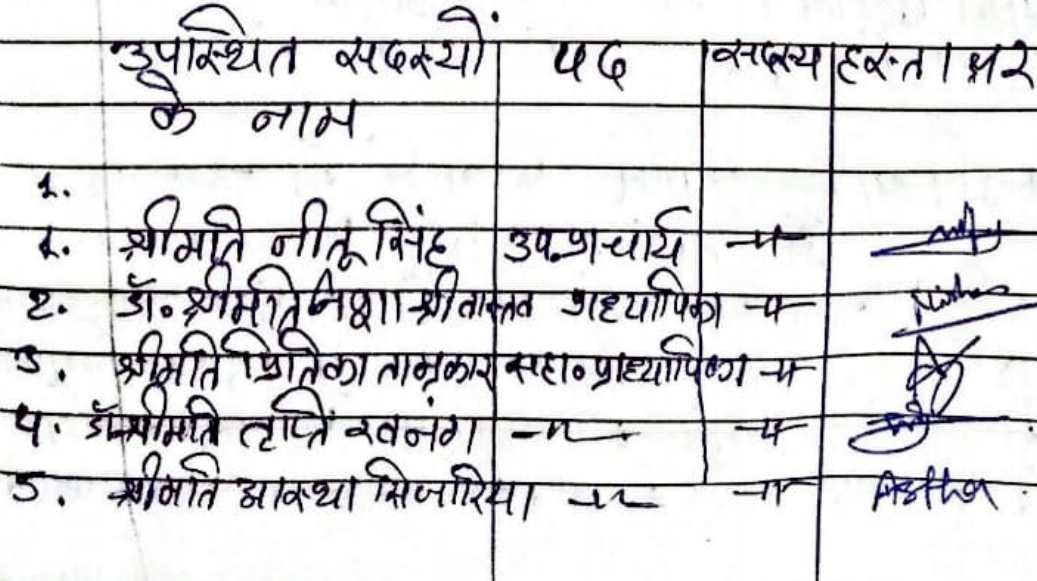 उपस्थित सदस्यों पद सदस्य हस्ताक्षर
के नाम
1.
1. श्रीमति नीतू सिंह उप.प्राचार्य -"-
2. डॉ. श्रीमति निशा श्रीवास्तव प्राध्यापिका -"-
3. श्रीमति प्रितिका ताम्रकार सहा० प्राध्यापिका -"-
4. डॉ श्रीमति तृप्ति खनंग -"- -"-
5. श्रीमति आस्था सिजारिया -"- -"- Astha